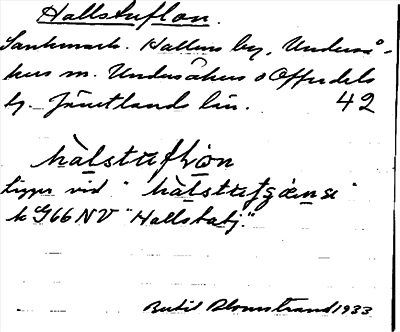 Hallstuflon.
Sankmark. Hallens by, Underså-
kers m. Undersåkers o Offerdals
tg. Jämtlands län. 42
hàlstufḷon
ligger vid "hàlstufgœnsı"
k G66 NV "Hallstatj."
Bertil Blomstrand 1933